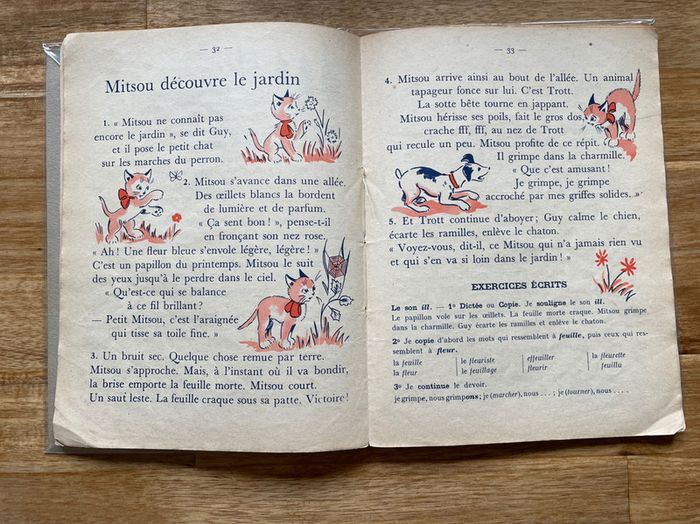 — 32 —
Mitsou découvre le jardin
1. « Mitsou ne connaît pas
encore le jardin », se dit Guy,
et il pose le petit chat
sur les marches du perron.
2. Mitsou s'avance dans une allée.
Des œillets blancs la bordent
de lumière et de parfum.
« Ça sent bon ! », pense-t-il
en fronçant son nez rose.
« Ah ! Une fleur bleue s'envole légère, légère ! »
C'est un papillon du printemps. Mitsou le suit
des yeux jusqu'à le perdre dans le ciel.
« Qu'est-ce qui se balance
à ce fil brillant ?
— Petit Mitsou, c'est l'araignée
qui tisse sa toile fine. »
3. Un bruit sec. Quelque chose remue par terre.
Mitsou s'approche. Mais, à l'instant où il va bondir,
la brise emporte la feuille morte. Mitsou court.
Un saut leste. La feuille craque sous sa patte. Victoire !
— 33 —
4. Mitsou arrive ainsi au bout de l'allée. Un animal
tapageur fonce sur lui. C'est Trott.
La sotte bête tourne en jappant.
Mitsou hérisse ses poils, fait le gros dos,
crache fff, fff, au nez de Trott
qui recule un peu. Mitsou profite de ce répit.
Il grimpe dans la charmille.
« Que c'est amusant !
Je grimpe, je grimpe
accroché par mes griffes solides. »
5. Et Trott continue d'aboyer ; Guy calme le chien,
écarte les ramilles, enlève le chaton.
« Voyez-vous, dit-il, ce Mitsou qui n'a jamais rien vu
et qui s'en va si loin dans le jardin ! »
EXERCICES ÉCRITS
Le son ill. — 1º Dictée ou Copie. Je souligne le son ill.
Le papillon vole sur les œillets. La feuille morte craque. Mitsou grimpe
dans la charmille. Guy écarte les ramilles et enlève le chaton.
2º Je copie d'abord les mots qui ressemblent à feuille, puis ceux qui res-
semblent à fleur.
la feuille | le fleuriste | effeuiller | la fleurette
la fleur | le feuillage | fleurir | feuillu
3º Je continue le devoir.
je grimpe, nous grimpons ; je (marcher), nous . . . ; je (tourner), nous . . . .